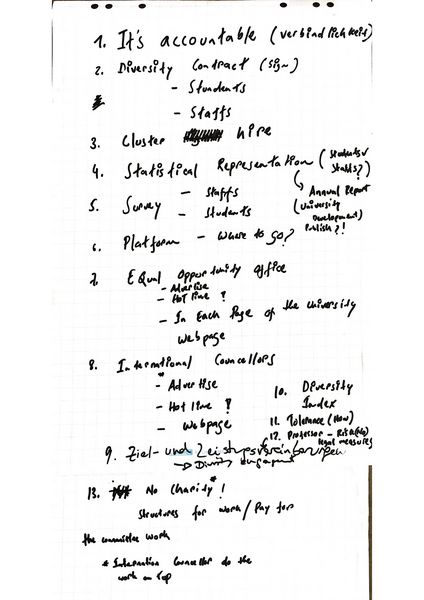 1. It's accountable (verbindlichkeit)
2. Diversity Contract (sign)
- Stundents
- Staffs
3. Cluster hire
4. Statistical Representation (students &
Staffs?)
Annual Report
(University
Development)
Publish?!
5. Survey - Staffs
- Students
6. Platform - Where to go?
7. EQual Opportunity office
- Advertise
- Hot line ?
- In Each Page of the University
Webpage
8. International Councellors
- Advertise
- Hot line ?
- Webpage
9. Ziel- und Leistungsvereinbarungen
→ Diversity
10. Diversity
Index
11. Tolerance (How)
12. Professor - 
legal measures
13. No Charity* !
Structures for work / Pay for
the committee work
* Internation Councellor do the
work on Top